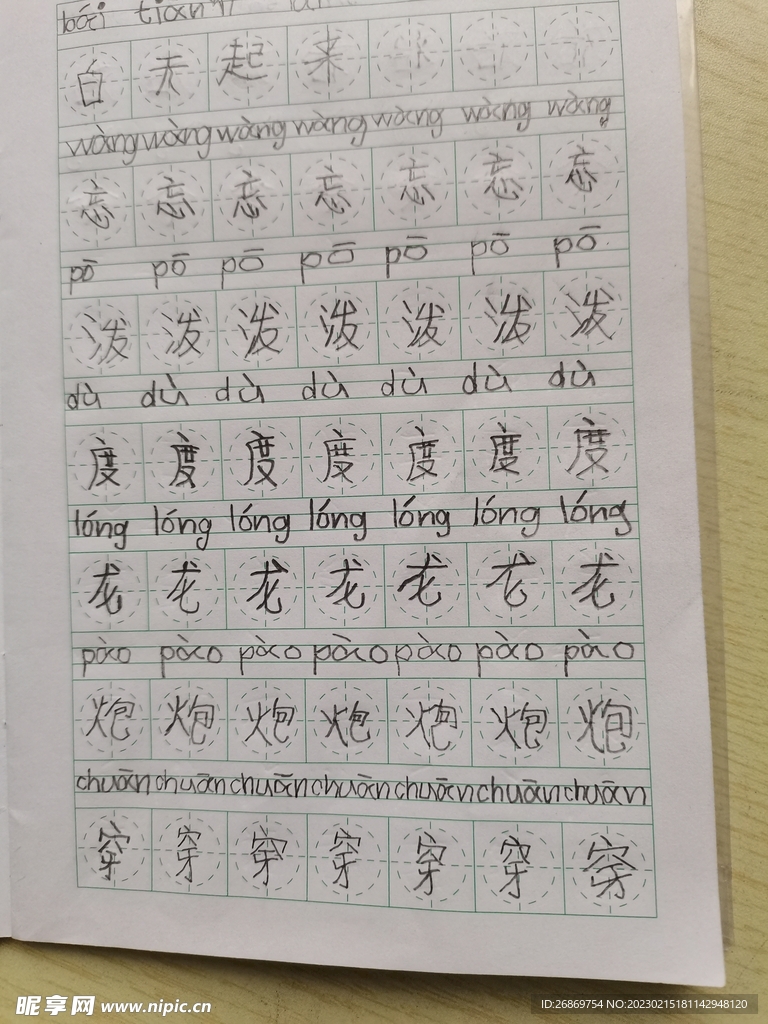 bái tiān qǐ
白天起来
wàng wàng wàng wàng wàng wàng wàng
忘忘忘忘忘忘忘
pō pō pō pō pō pō pō
泼泼泼泼泼泼泼
dù dù dù dù dù dù dù
度度度度度度度
lóng lóng lóng lóng lóng lóng lóng
龙龙龙龙龙龙龙
pào pào pào pào pào pào pào
炮炮炮炮炮炮炮
chuān chuān chuān chuān chuān chuān chuān
穿穿穿穿穿穿穿
昵享网 www.nipic.cn
ID:26869754 NO:20230215181142948120